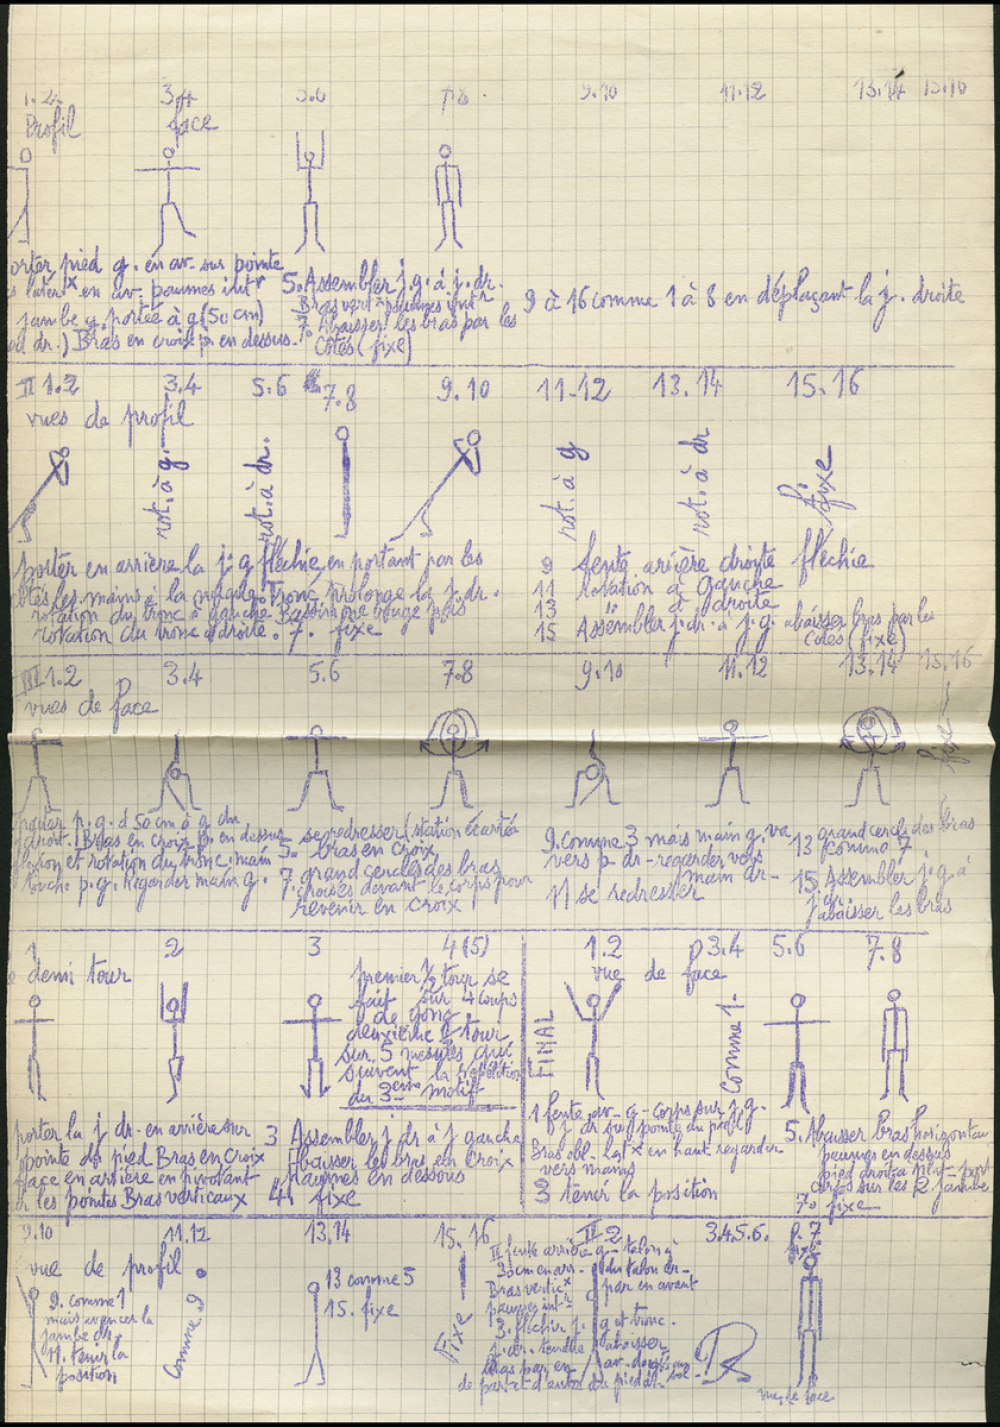 1.2 3.4 5.6 7.8 9.10 11.12 13.14 15.16
Profil face
orter pied g. en av. sur pointe
en av. paumes intr
jambe g. portée à g (50 cm)
dr.) Bras en croix p. en dessus.
5. Assembler j. g. à j. dr.
Bras vertx paumes intr
7. Abaisser les bras par les
côtés (fixe)
9 à 16 comme 1 à 8 en déplaçant la j. droite
II 1.2 3.4 5.6 7.8 9.10 11-12 13.14 15.16
vues de profil
rot. à g.
rot. à dr.
rot. à g
rot. à dr
fixe
porter en arrière la j. g fléchie, en portant par les
les mains à la nuque. Tronc prolonge la j. dr.
rotation du tronc à gauche Bassin ne bouge pas
rotation du tronc à droite. 7. fixe
9 fente arrière droite fléchie
11 rotation à gauche
13 " à droite
15 Assembler j. dr. à j. g. abaisser bras par les
côtés (fixe)
III 1.2 3.4 5.6 7.8 9.10 11.12 13.14 15.16
vues de face
fixe
p. g. à 50 cm à g. du
droit. Bras en croix p. en dessus
flexion et rotation du tronc, main
touche p. g. Regarder main g.
5. se redresser (station écartée
bras en croix
7. grand cercle des bras
croisés devant le corps pour
revenir en croix
9. Comme 3 mais main g. va
vers p. dr - regarder vers
main dr-
11 se redresser
13 grand cercle des bras
comme 7
15. Assembler j. g à
j. dr
abaisser les bras
1 2 3 4 (5)
demi tour
premier ½ tour se
fait sur 4 coups
de gong
deuxième ½ tour
sur 5 mesures qui
suivent la répétition
du 3eme motif
porter la j dr. en arrière sur
pointe du pied Bras en croix
face en arrière en pivotant
les pointes Bras verticaux
3 Assembler j dr à j gauche
Abaisser les bras en croix
paumes en dessous
4. fixe
FINAL
1.2 3.4 5.6 7.8
vue de face
Comme 1.
1 fente av- g- corps sur j. g-
j dr sur pointe du pied
Bras obl- latx en haut regarder
vers mains
3 tenir la position
5. Abaisser bras horizontaux
paumes en dessous
pied droit à plat- port
corps sur les 2 jambes
7. fixe
9.10 11.12 13.14 15.16 II 2 3.4.5.6. 7
vue de profil
9. comme 1
mais avancer la
jambe dr.
11. tenir la
position
Comme 9
13 comme 5
15. fixe
Fixe
fente arrière g- talon g
30 cm en arr. du talon dr-
Bras vertic x par en avant
paumes intr
3. fléchir j. g et tronc.
j. dr. tendue abaisser
bras par en av-
de part et d'autre du pied dr-
fixe
vue de face